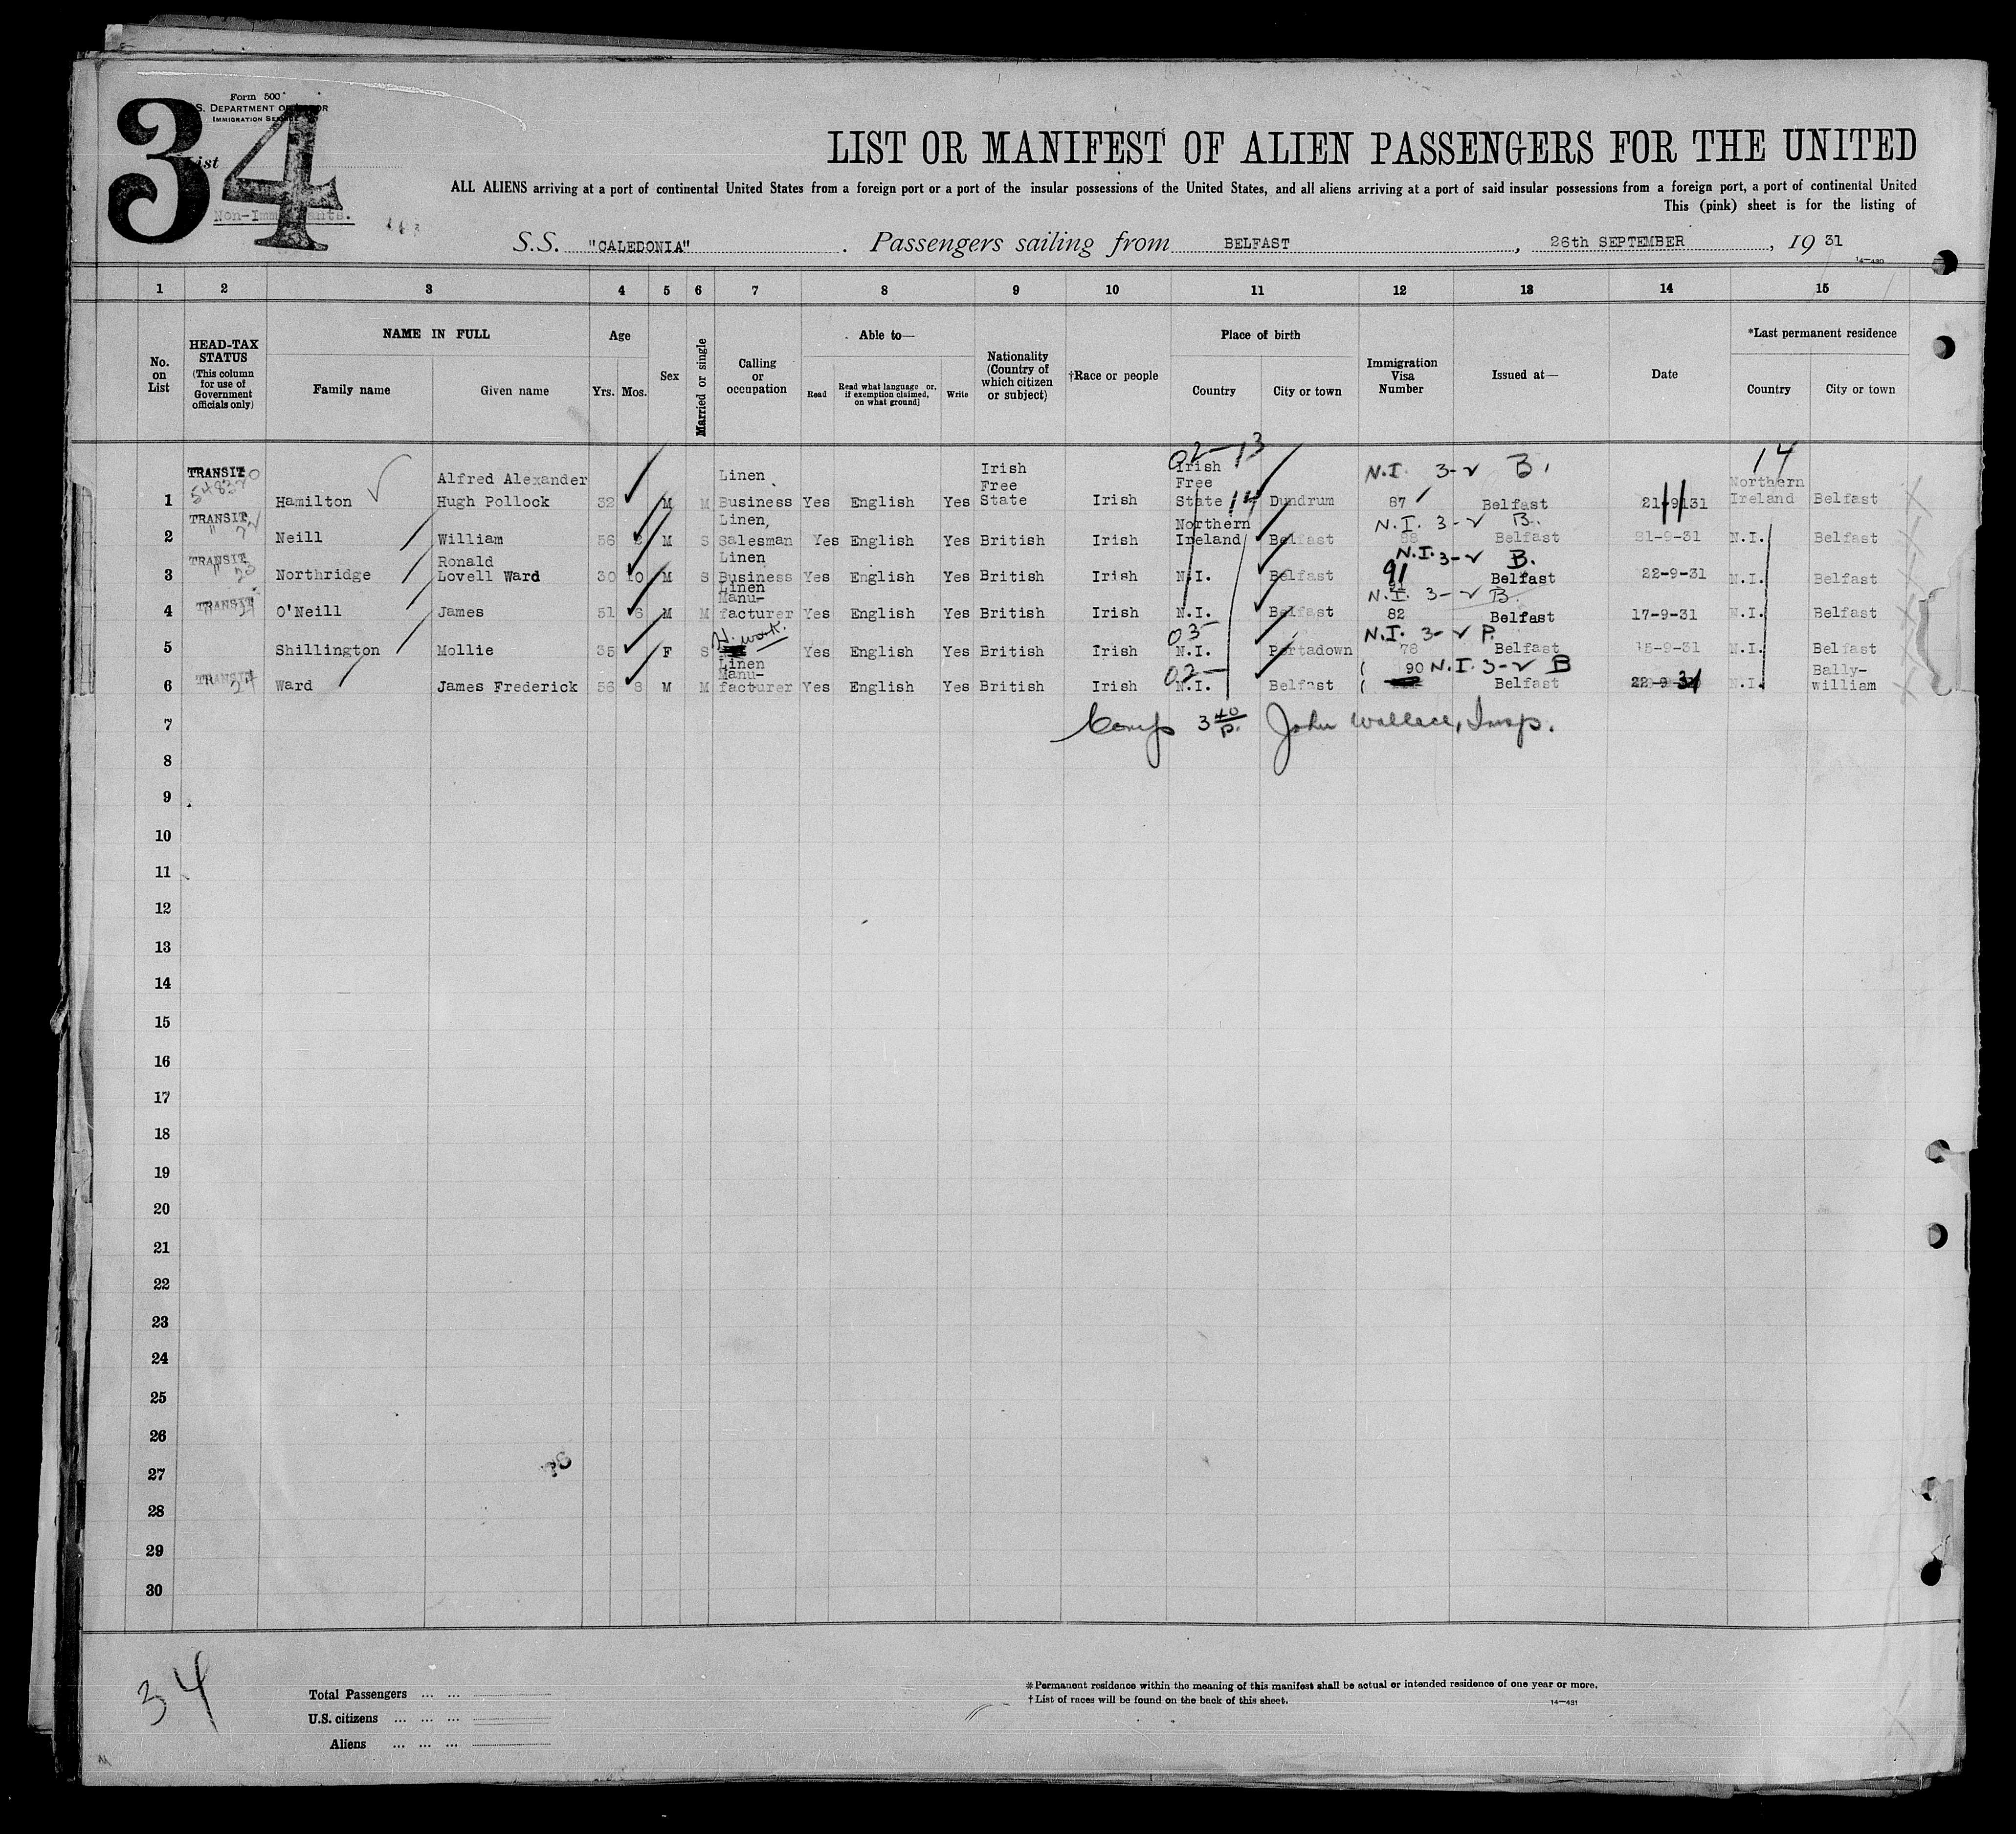 34
Form 500
U.S. DEPARTMENT OF LABOR
IMMIGRATION SERVICE
List
Non-Immigrants.
LIST OR MANIFEST OF ALIEN PASSENGERS FOR THE UNITED
ALL ALIENS arriving at a port of continental United States from a foreign port or a port of the insular possessions of the United States, and all aliens arriving at a port of said insular possessions from a foreign port, a port of continental United
This (pink) sheet is for the listing of
S.S. "CALEDONIA". Passengers sailing from BELFAST, 26th SEPTEMBER, 19 31
14-430
1 2 3 4 5 6 7 8 9 10 11 12 13 14 15
No. on List
HEAD-TAX STATUS (This column for use of Government officials only)
NAME IN FULL
Family name Given name
Age
Yrs. Mos.
Sex
Married or single
Calling or occupation
Able to—
Read Read what language [or, if exemption claimed, on what ground] Write
Nationality (Country of which citizen or subject)
†Race or people
Place of birth
Country City or town
Immigration Visa Number
Issued at—
Date
*Last permanent residence
Country City or town
02-13 14
TRANSIT 548320 N.I. 3-v B.
1 Hamilton Alfred Alexander Hugh Pollock 32 M M Linen Business Yes English Yes Irish Free State Irish Irish Free State 14 Dundrum 87 Belfast 21-9-31 Northern Ireland Belfast
TRANSIT " N.I. 3-v B.
2 Neill William 56 M S Linen, Salesman Yes English Yes British Irish Northern Ireland Belfast 88 Belfast 21-9-31 N.I. Belfast
TRANSIT " 23 N.I. 3-v B.
3 Northridge Ronald Lovell Ward 30 10 M S Linen Business Yes English Yes British Irish N.I. Belfast 91 Belfast 22-9-31 N.I. Belfast
TRANSIT N.I. 3-v B.
4 O'Neill James 51 6 M M Linen Manu-facturer Yes English Yes British Irish N.I. Belfast 82 Belfast 17-9-31 N.I. Belfast
03- N.I. 3-v P.
5 Shillington Mollie 35 F S N. work. Yes English Yes British Irish N.I. Portadown 78 Belfast 15-9-31 N.I. Belfast
TRANSIT 24 02- 90 N.I. 3-v B
6 Ward James Frederick 56 8 M M Linen Manu-facturer Yes English Yes British Irish N.I. Belfast Belfast 22-9-31 N.I. Bally-william
7 3 40/p. John Wallace, Insp.
8
9
10
11
12
13
14
15
16
17
18
19
20
21
22
23
24
25
26
27
28
29
30
34
Total Passengers ... ...
U.S. citizens ... ... ...
Aliens ... ... ...
*Permanent residence within the meaning of this manifest shall be actual or intended residence of one year or more.
†List of races will be found on the back of this sheet.
14-431